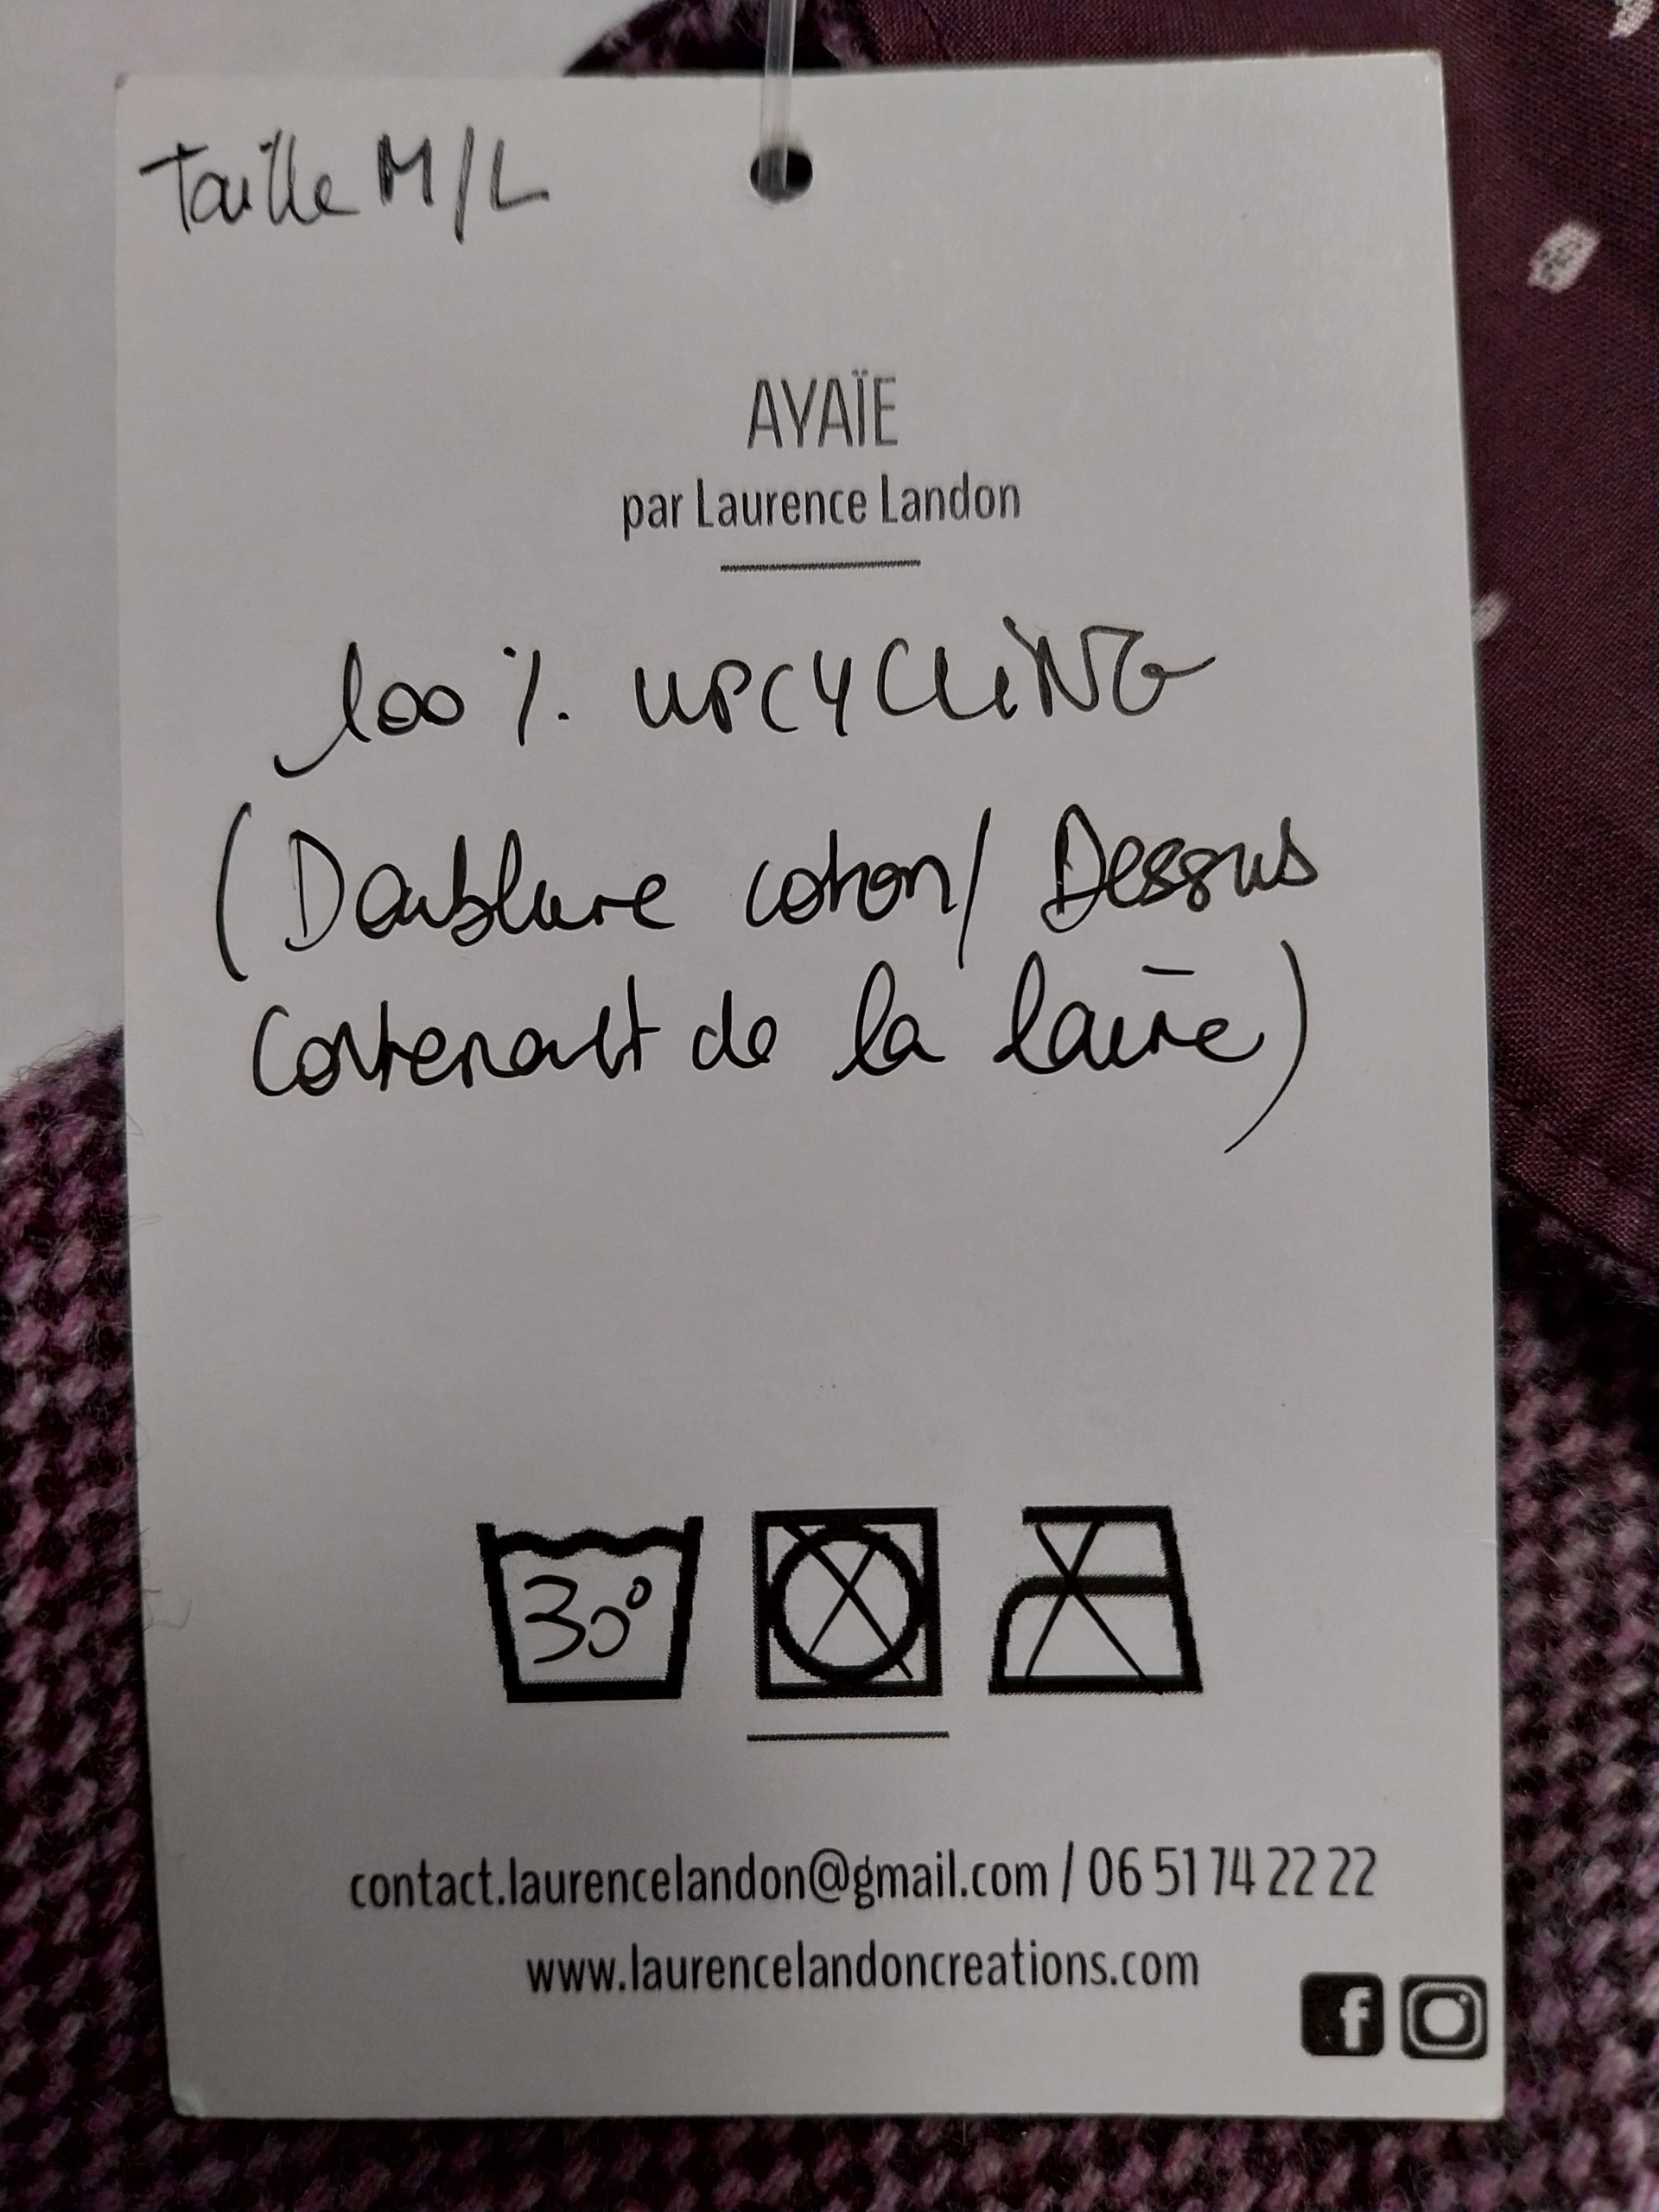 Taille M/L
AYAÏE
par Laurence Landon
100 % UPCYCLING
(Doublure coton/ Dessus
contenant de la laine)
30°
contact.laurencelandon@gmail.com / 06 51 74 22 22
www.laurencelandoncreations.com
f